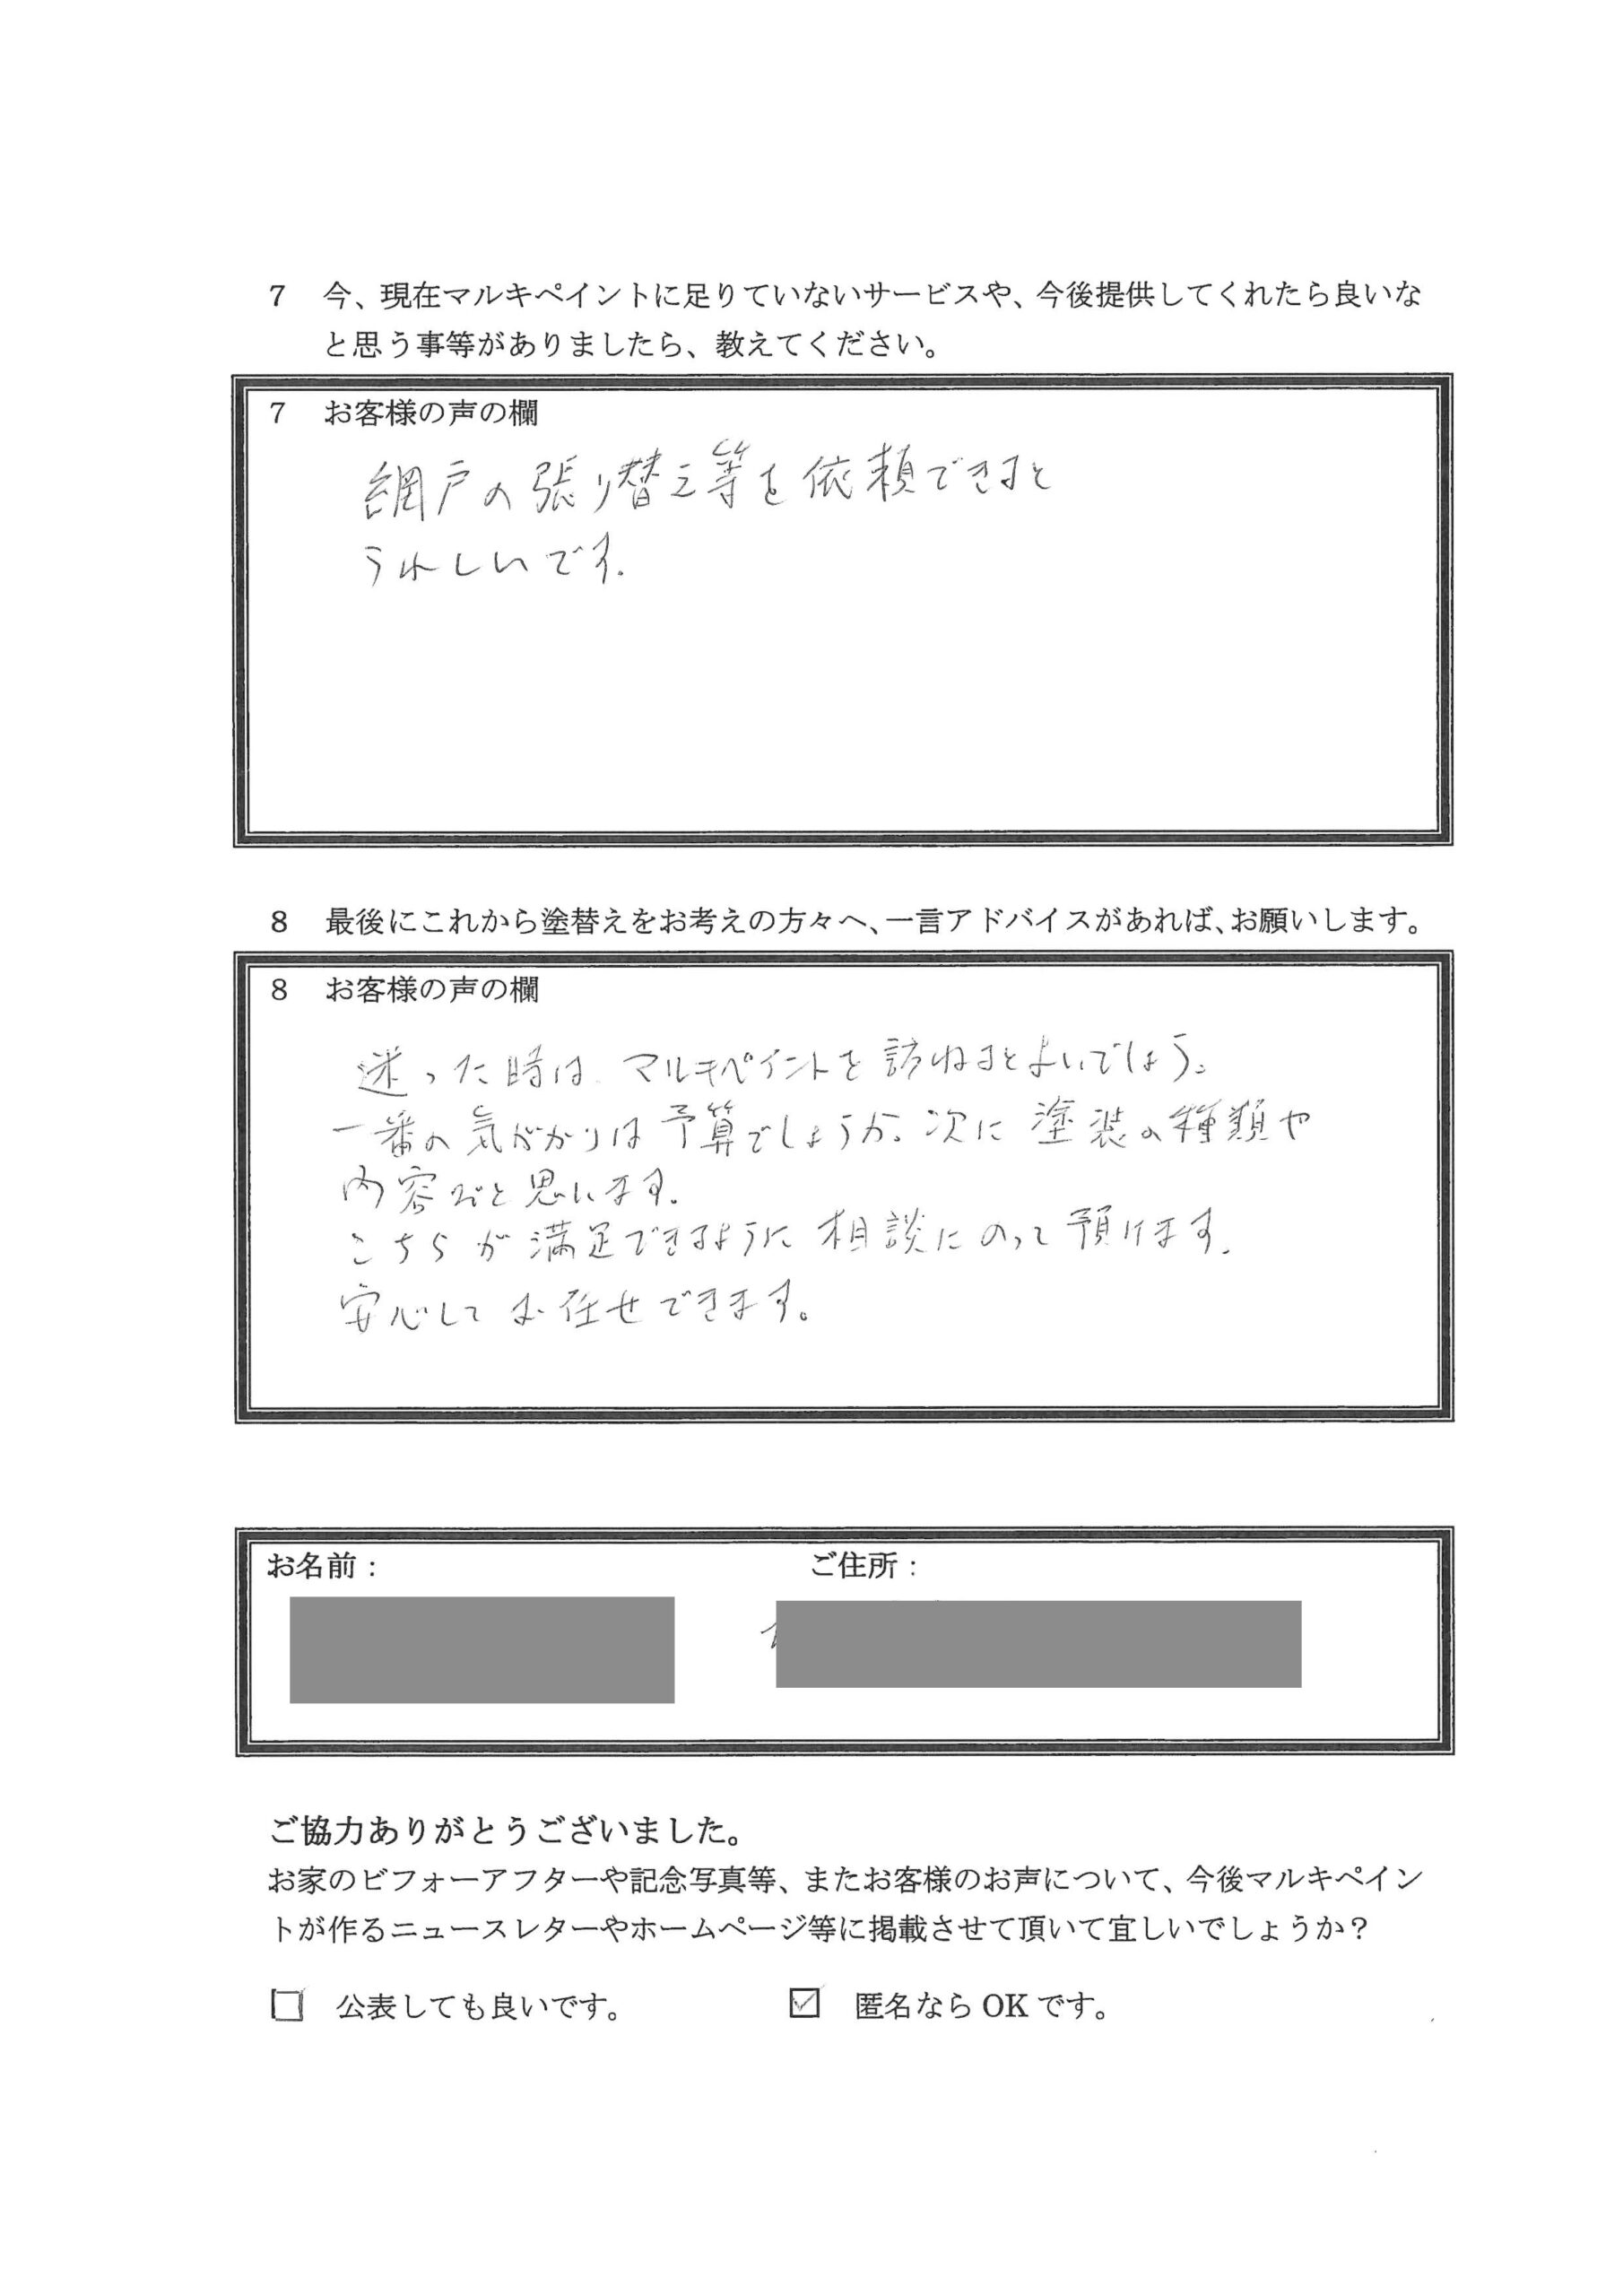 7 今、現在マルキペイントに足りていないサービスや、今後提供してくれたら良いな
と思う事等がありましたら、教えてください。
7 お客様の声の欄
網戸の張り替え等を依頼できると
うれしいです.
8 最後にこれから塗替えをお考えの方々へ、一言アドバイスがあれば、お願いします。
8 お客様の声の欄
迷った時は マルキペイントを訪ねるとよいでしょう。
一番の気がかりは予算でしょうか。次に塗装の種類や
内容だと思います.
こちらが満足できるように相談にのって預けます.
安心してお任せできます。
お名前: ご住所:
ご協力ありがとうございました。
お家のビフォーアフターや記念写真等、またお客様のお声について、今後マルキペイン
トが作るニュースレターやホームページ等に掲載させて頂いて宜しいでしょうか？
□ 公表しても良いです。 ☑ 匿名なら OK です。